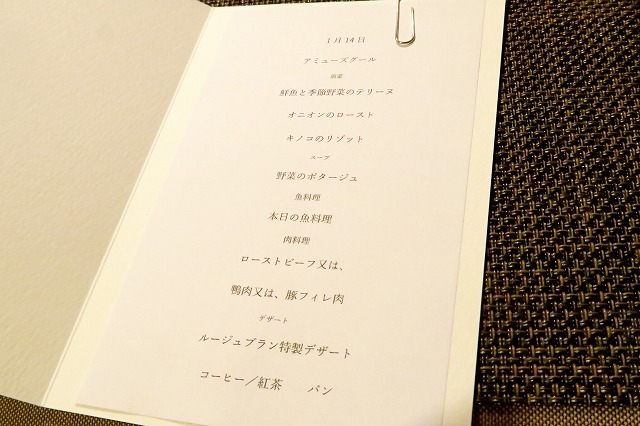 1月14日
アミューズグール
前菜
鮮魚と季節野菜のテリーヌ
オニオンのロースト
キノコのリゾット
スープ
野菜のポタージュ
魚料理
本日の魚料理
肉料理
ローストビーフ又は、
鴨肉又は、豚フィレ肉
デザート
ルージュブラン特製デザート
コーヒー／紅茶　　パン